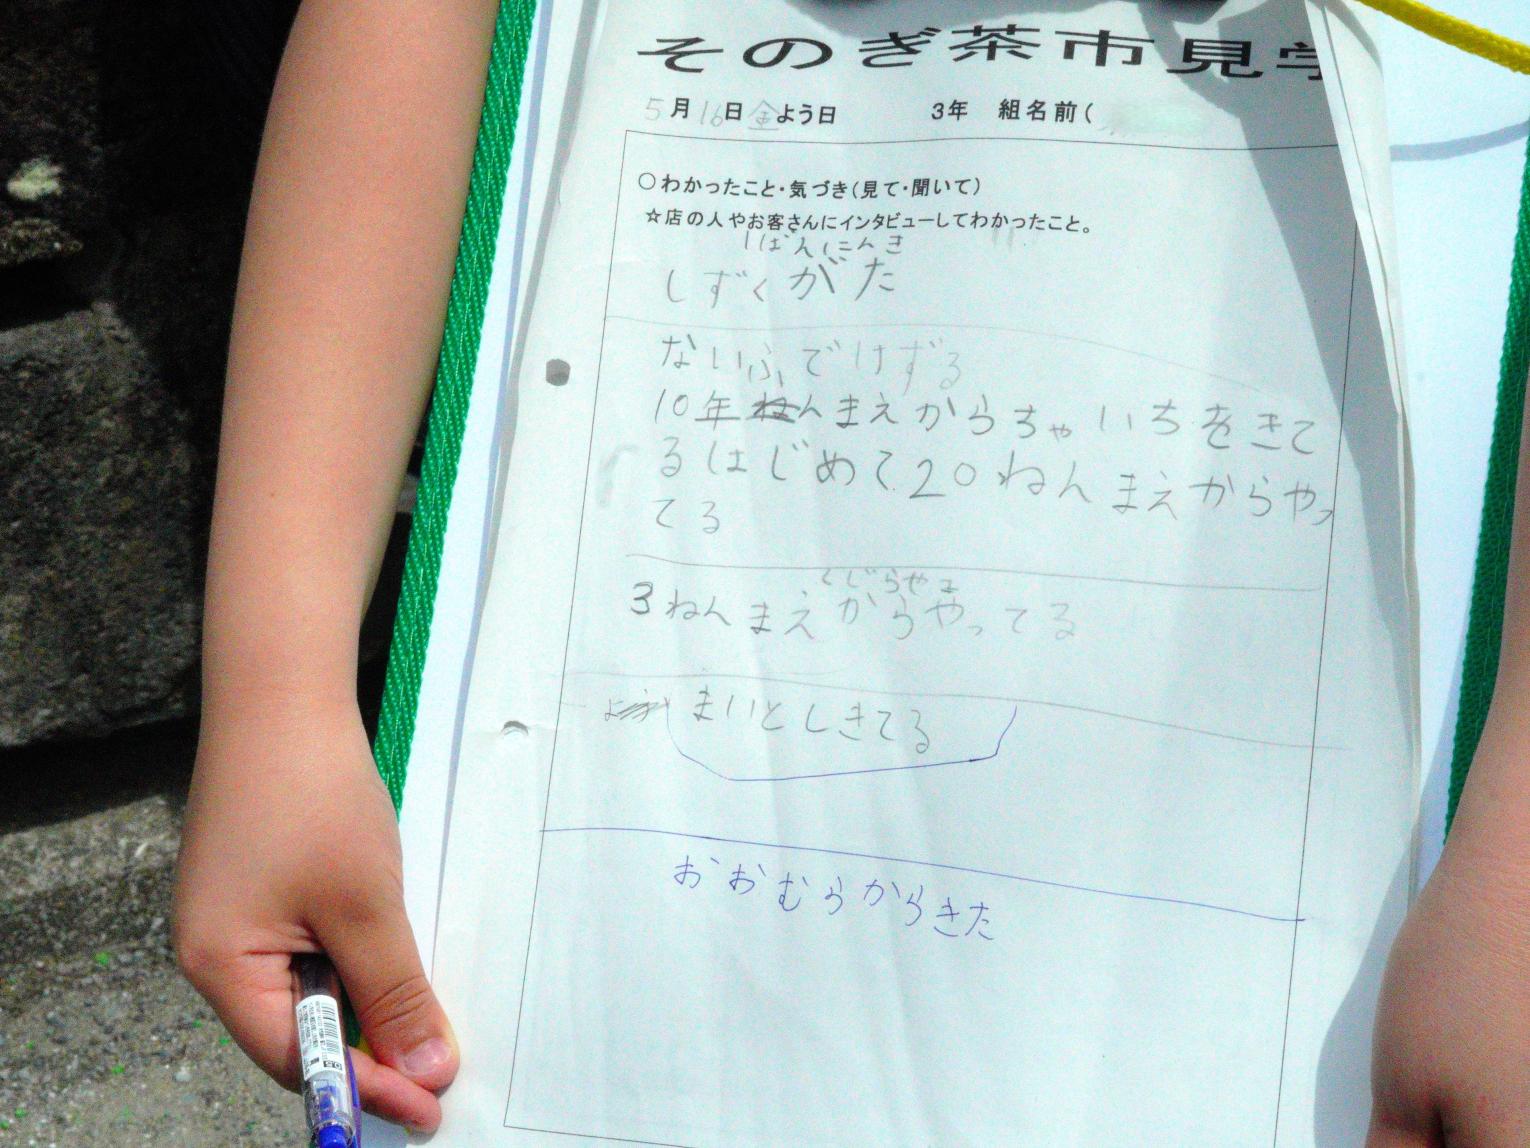 そのぎ茶市見学
5月16日金よう日 3年 組名前(
○わかったこと・気づき(見て・聞いて)
☆店の人やお客さんにインタビューしてわかったこと。
1ばんにんき
しずくがた
ないふでけずる
10年んまえからちゃいちをきて
るはじめて20ねんまえからやっ
てる
くじらやま
3ねんまえからやってる
まいとしきてる
おおむらからきた
0.5